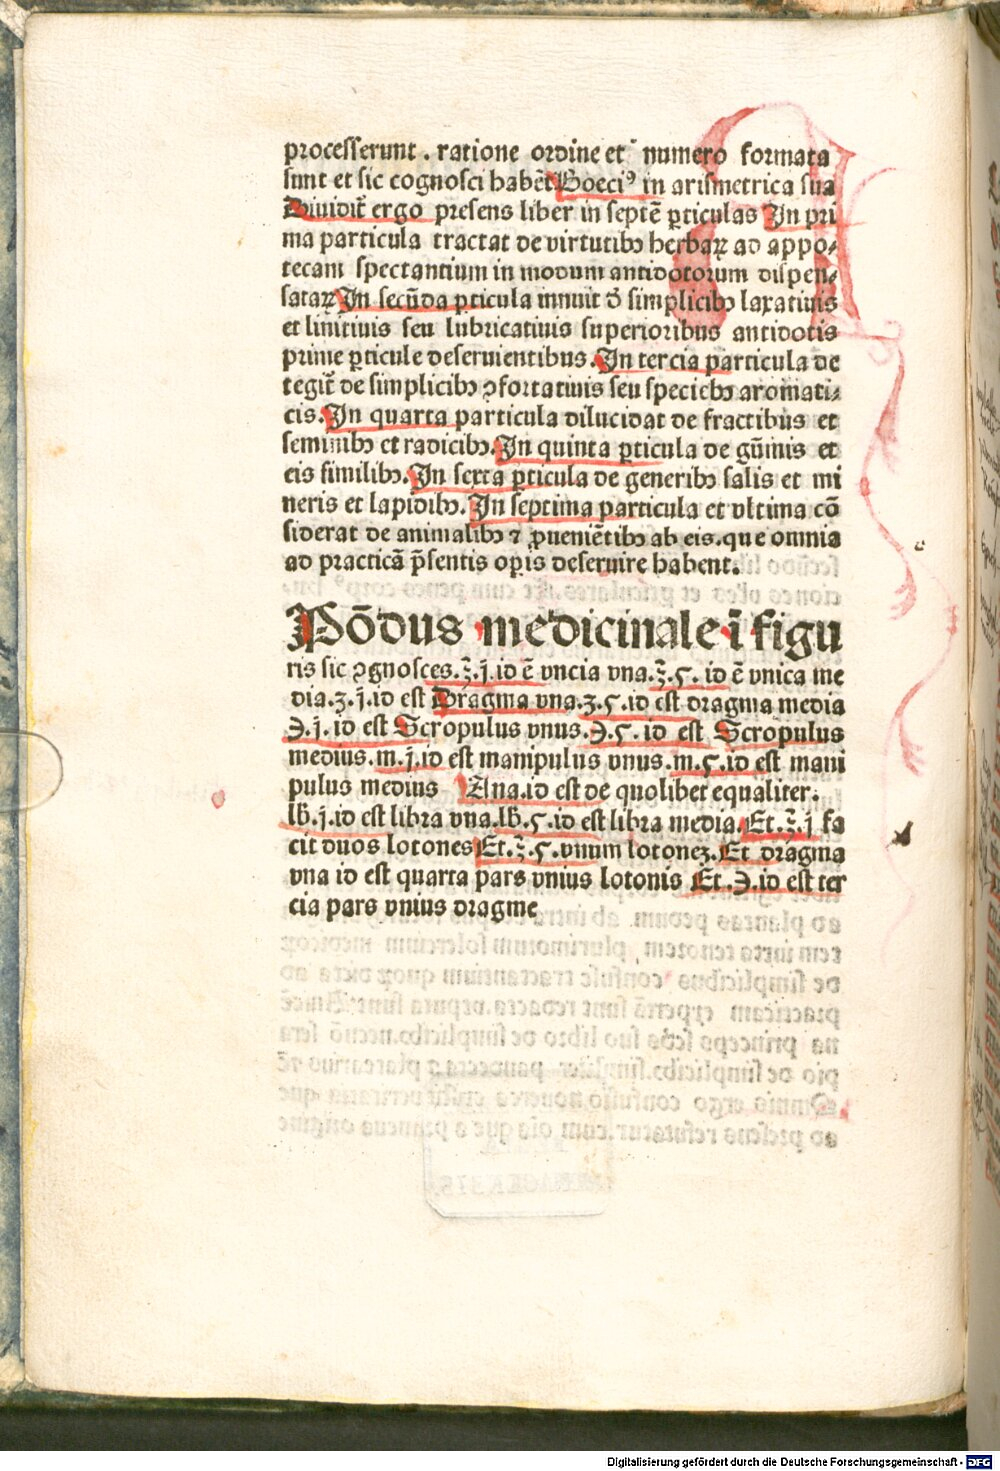 processerunt . ratione ordine et numero formata
sunt et sic cognosci habēt Boeciꝰ in arismetrica sua
Diuidit᷑ ergo presens liber in septē ꝑticulas In pri
ma particula tractat de virtutibꝫ herbaꝝ ad appo⸗
tecam spectantium in modum antidotorum dispen⸗
sataꝝ In secūda ꝑticula innuit d̄ simplicibꝫ laxatiuis
et linitiuis seu lubricatiuis superioribus antidotis
prime ꝑticule deseruientibus. In tercia particula de
tegit᷑ de simplicibꝫ ꝯfortatiuis seu speciebꝫ aromati⸗
cis. In quarta particula dilucidat de fractibus et
seminibꝫ et radicibꝫ. In quinta ꝑticula de gūmis et
eis similibꝫ. In sexta ꝑticula de generibꝫ salis et mi
neris et lapidibꝫ. In septima particula et vltima cō
siderat de animalibꝫ ⁊ ꝓueniētibꝫ ab eis. que omnia
ad practicā p̄sentis oꝑis deseruire habent.
Pōdus medicinale ī figu
ris sic ꝯgnosces. ℥. j. id ē vncia vna. ℥. ς. id ē vnica me
dia. ʒ. j. id est Dragma vna. ʒ. ς. id est dragma media
℈. j. id est Scropulus vnus. ℈. ς. id est Scropulus
medius. m. j. id est manipulus vnus. m. ς. id est mani
pulus medius Ana. id est de quolibet equaliter.
lb. j. id est libra vna. lb. ς. id est libra media. Et. ℥. j fa
cit duos lotones Et. ℥. ς. vnum lotonez. Et dragma
vna id est quarta pars vnius lotonis Et. ℈. id est ter
cia pars vnius dragme
Digitalisierung gefördert durch die Deutsche Forschungsgemeinschaft - DFG